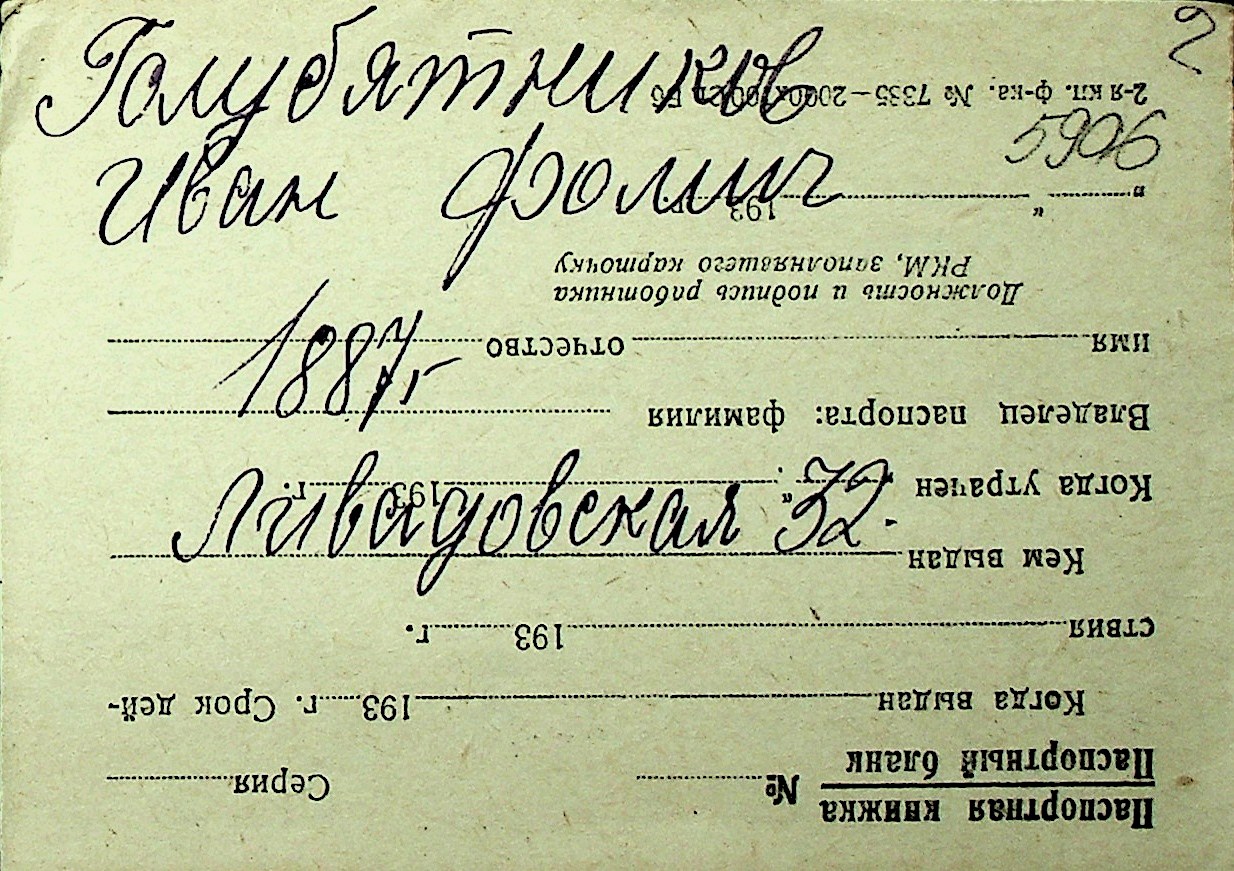 Голубятников
2
5906
Иван Фомич
1887 г
Ливадовская 32.
Паспортная книжка
Паспортный бланк № Серия
Когда выдан 193 г. Срок дей-
ствия 193 г.
Кем выдан
Когда утрачен „ “ 193 г.
Владелец паспорта: фамилия
имя отчество
Должность и подпись работника
РКМ, заполнявшего карточку
„ “ 193 г.
2-я кп. ф-ка. № 7335—